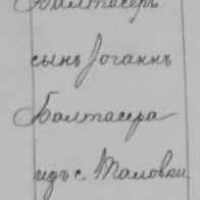 Балтасеръ
сынъ Іоганнъ
Балтасера
изъ с. Таловки